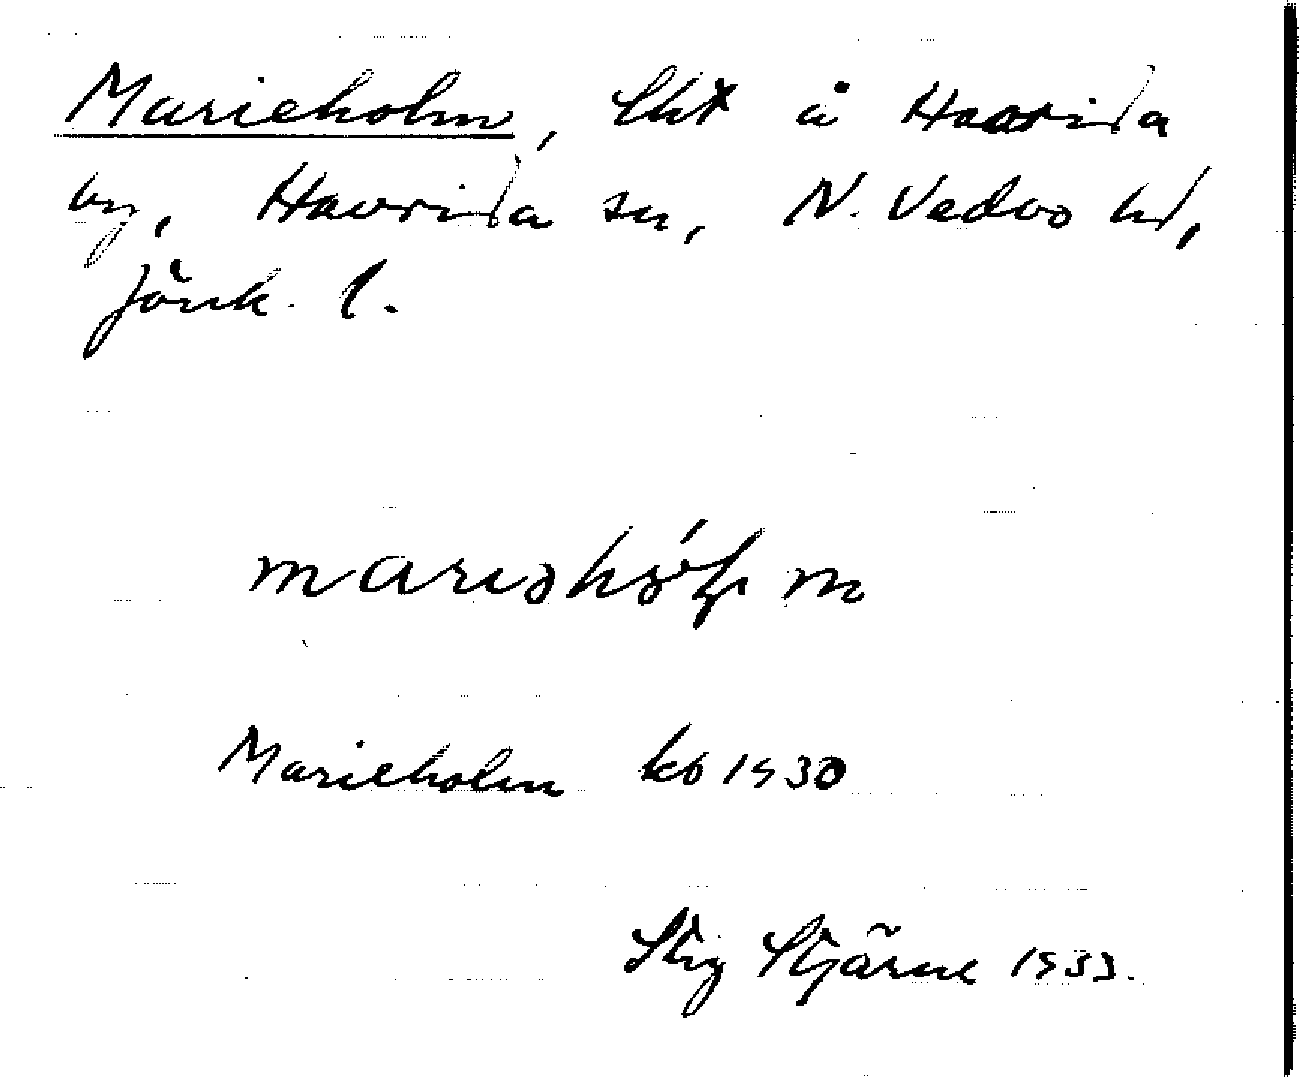 Marieholm, lht å Haurida
by, Haurida sn, N. Vedbo hd,
Jönk. l.
Marieholm kb 1930
Stig Stjärne 1933.